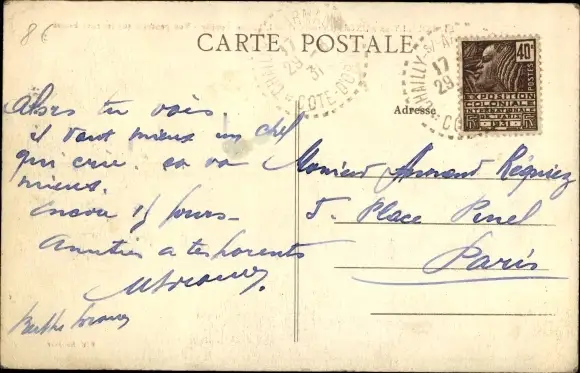 86
CARTE POSTALE
CHAILLY S/ ARM
17
29
31
CÔTE-D'OR
40c
POSTES
EXPOSITION
COLONIALE
INTERNATIONALE
DE PARIS
1931
Adresse
Alors tu vois
il vaut mieux un chef
qui crie. ça va
mieux.
encore 15 jours_
Amitiés a tes parents
Monsieur Armand Régniez
5. Place Pinel
Paris
Berthe